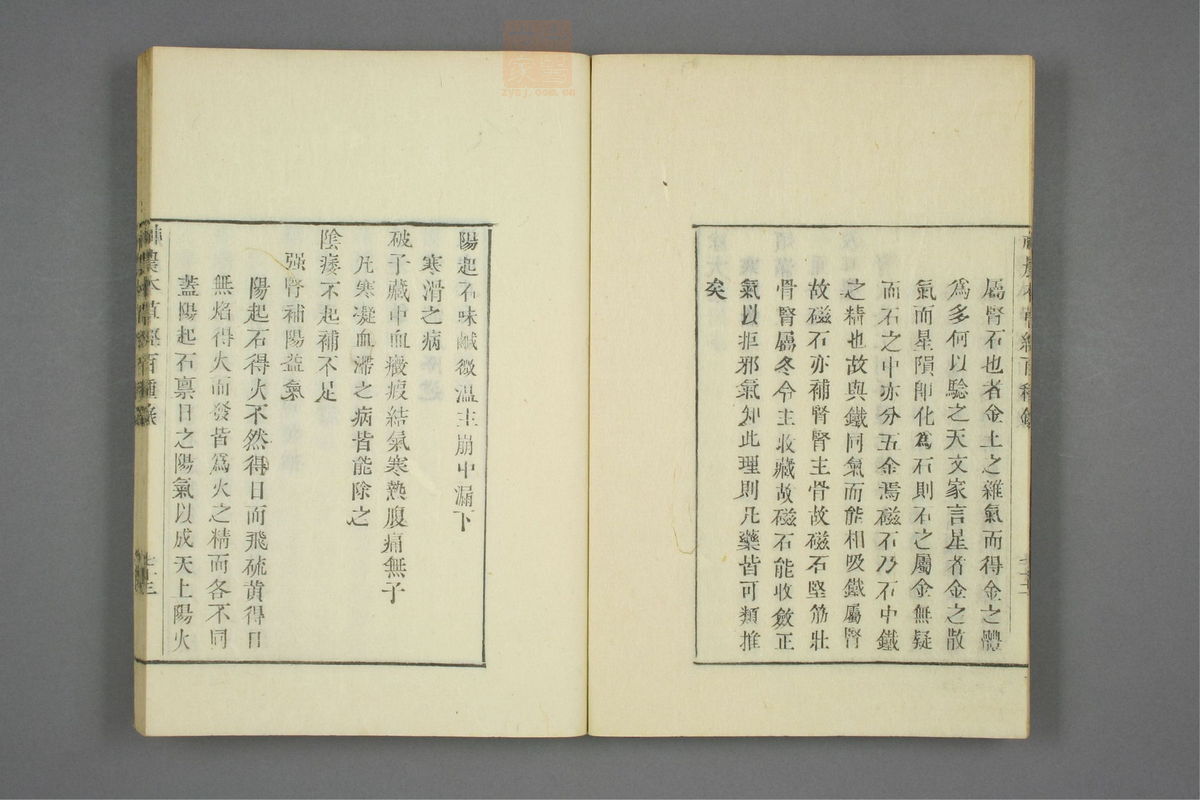 屬腎石也者金土之雜氣而得金之體
爲多何以驗之天文家言星者金之散
氣而星隕卽化爲石則石之屬金無疑
而石之中亦分五金焉磁石乃石中鐵
之精也故與鐵同氣而能相吸鐵屬腎
故磁石亦補腎腎主骨故磁石堅筋壯
骨腎屬冬令主收藏故磁石能收斂正
氣以拒邪氣知此理則凡藥皆可類推
矣
陽起石味鹹微溫主崩中漏下
寒滑之病
破子藏中血癥瘕結氣寒熱腹痛無子
凡寒凝血滯之病皆能除之
陰痿不起補不足
强腎補陽益氣
陽起石得火不然得日而飛硫黃得日
無焰得火而發皆爲火之精而各不同
蓋陽起石禀日之陽氣以成天上陽火
神農本草經百種錄
zysj.com.cn